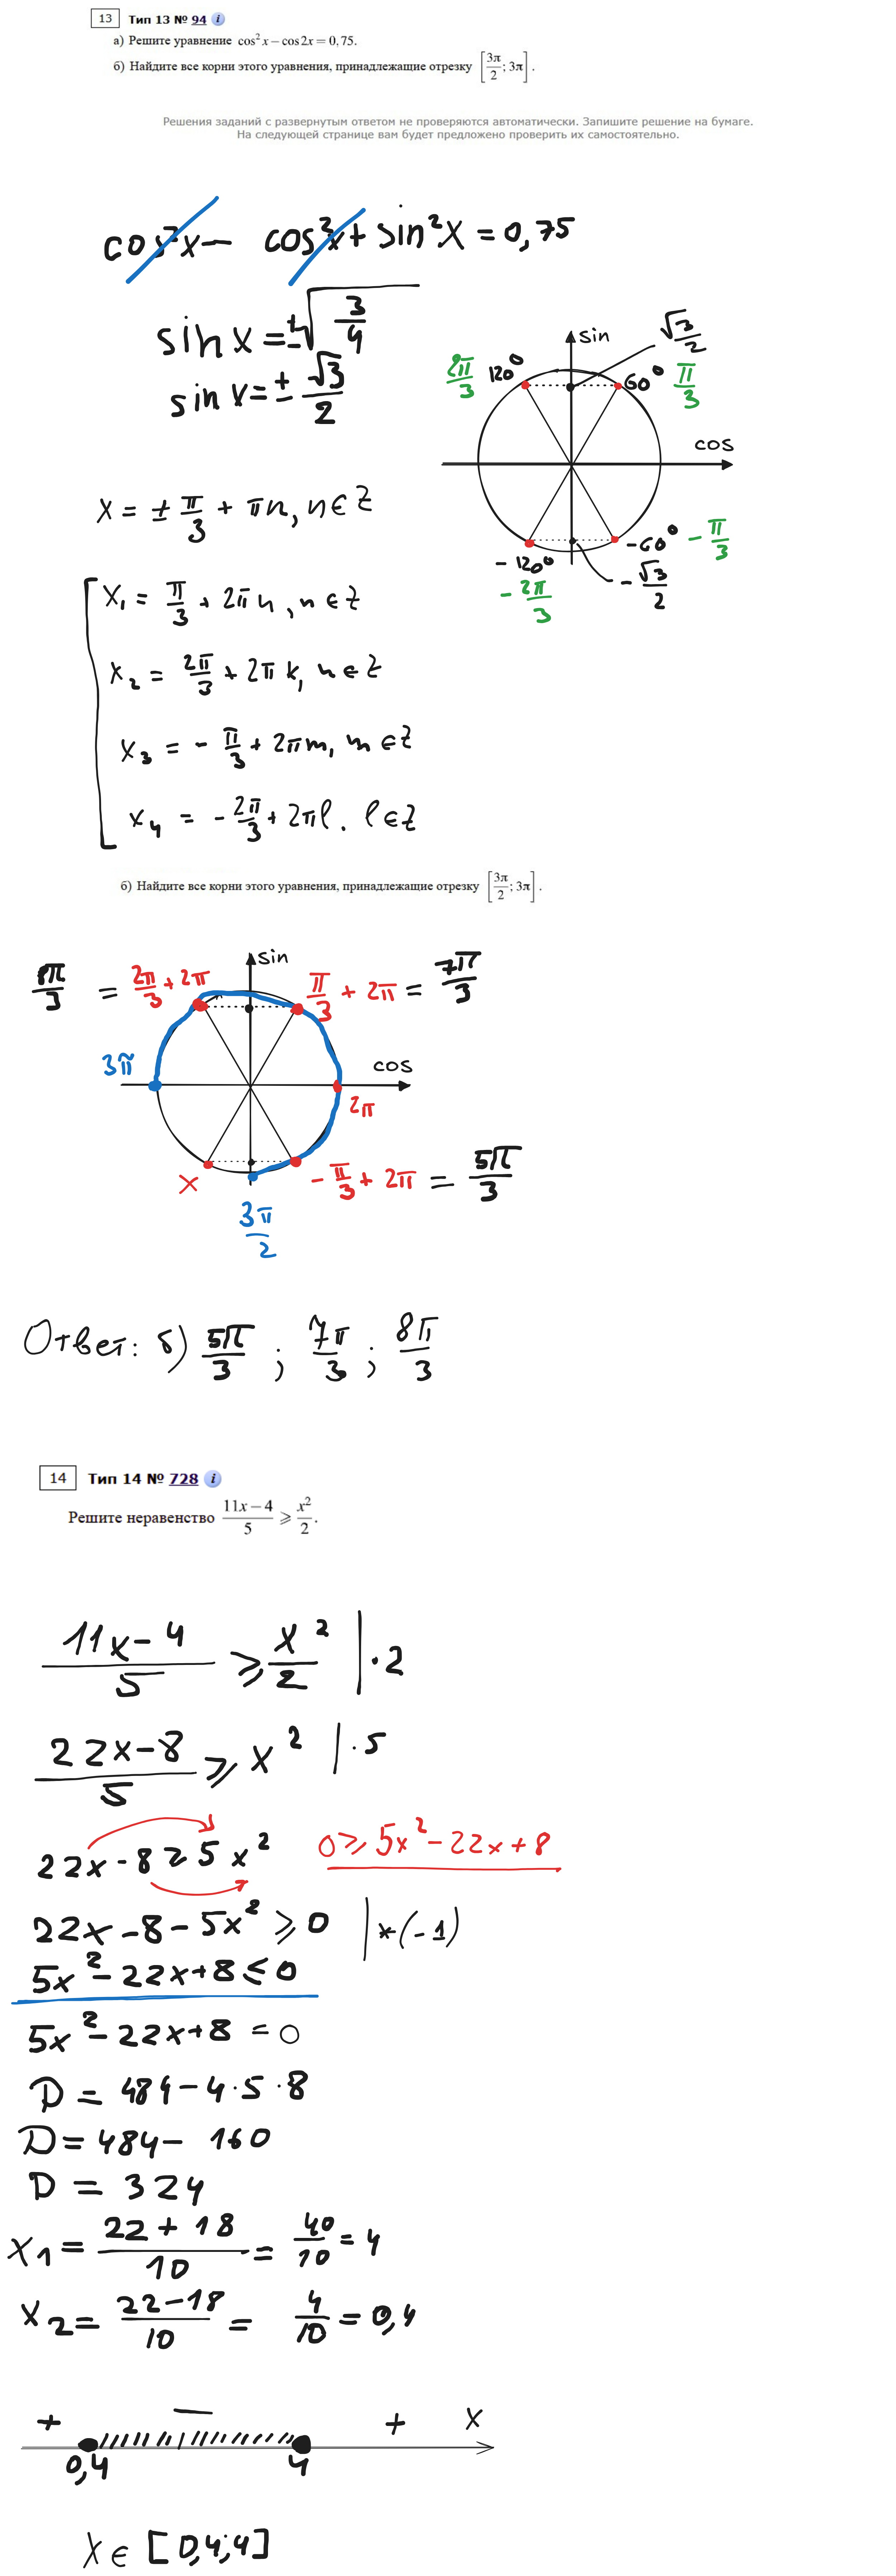 13 Тип 13 № 94 i
а) Решите уравнение cos² x − cos 2x = 0,75.
б) Найдите все корни этого уравнения, принадлежащие отрезку [3π/2; 3π].
Решения заданий с развернутым ответом не проверяются автоматически. Запишите решение на бумаге.
На следующей странице вам будет предложено проверить их самостоятельно.
cos²x − cos²x + sin²x = 0,75
sin x = ±√(3/4)
sin x = ± √3/2
sin
√3/2
2π/3 120°
60° π/3
cos
−60° −π/3
−120°
−2π/3
−√3/2
x = ± π/3 + πn, n ∈ Z
x₁ = π/3 + 2πn, n ∈ Z
x₂ = 2π/3 + 2πk, n ∈ Z
x₃ = − π/3 + 2πm, m ∈ Z
x₄ = − 2π/3 + 2πl. l ∈ Z
б) Найдите все корни этого уравнения, принадлежащие отрезку [3π/2; 3π].
sin
8π/3 = 2π/3 + 2π
π/3 + 2π = 7π/3
3π
cos
2π
×
− π/3 + 2π = 5π/3
3π/2
Ответ: б) 5π/3 ; 7π/3 ; 8π/3
14 Тип 14 № 728 i
Решите неравенство (11x − 4)/5 ⩾ x²/2.
(11x − 4)/5 ⩾ x²/2 | ·2
(22x − 8)/5 ⩾ x² | ·5
22x − 8 ≥ 5x²
0 ⩾ 5x² − 22x + 8
22x − 8 − 5x² ⩾ 0 | *(−1)
5x² − 22x + 8 ≤ 0
5x² − 22x + 8 = 0
D = 484 − 4·5·8
D = 484 − 160
D = 324
x₁ = (22 + 18)/10 = 40/10 = 4
x₂ = (22 − 18)/10 = 4/10 = 0,4
+ − + x
0,4 4
x ∈ [0,4; 4]